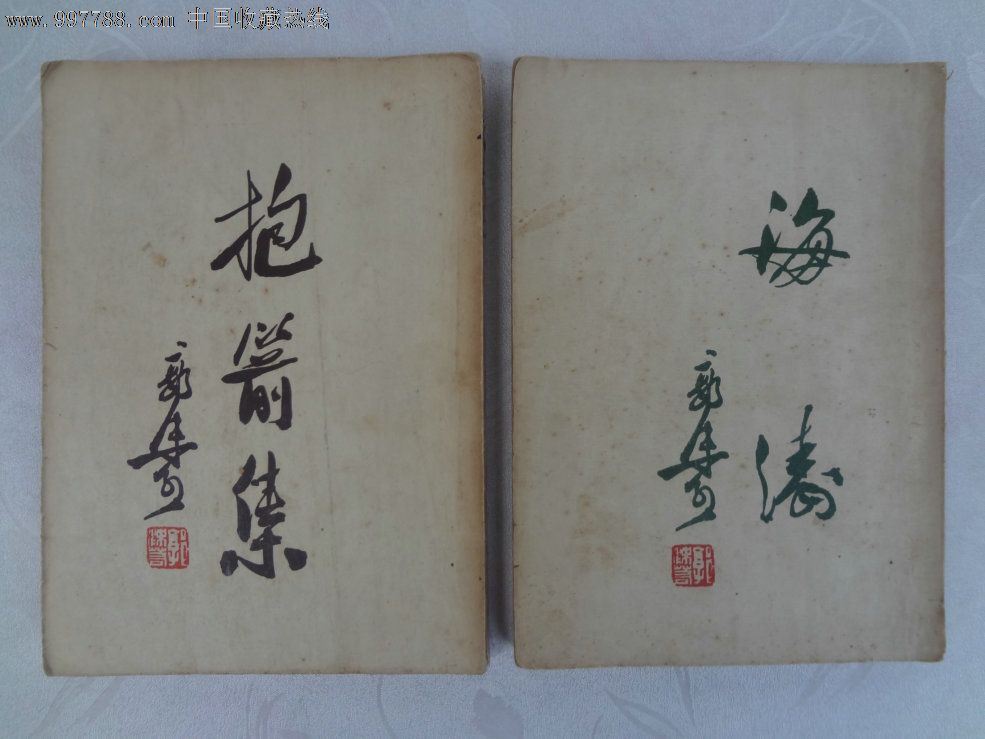 www.997788.com 中国收藏热线
抱箭集
郭沫若
郭沫若
海濤
郭沫若
郭沫若